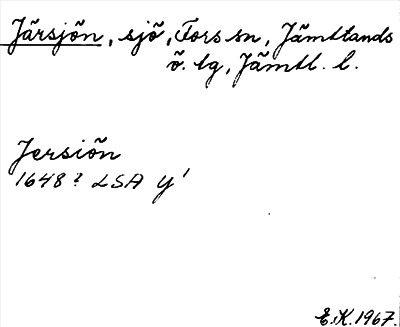 Järsjön, sjö, Fors sn, Jämtlands
ö. tg, Jämtl. l.
Jersiön
1648? LSA Y'
E.K. 1967.